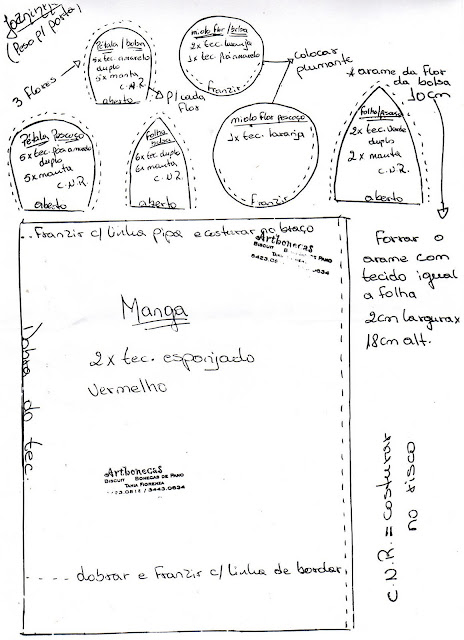 Joaninha
(Peso p/ porta)
3 Flores
Pétala/bolsa
5x tec. amarelo
duplo
5x manta
C.N.R.
aberto
p/cada
flor
miolo Flor/bolsa
2x tec. laranja
1x tec.
Franzir
colocar
plumante
* arame da Flor
da bolsa
10cm
Pétala Pescoço
5x tec.
duplo
5x manta
C.N.R.
aberto
Folha
bolsa
6x tec duplo
6x manta
C.N.R.
aberto
miolo Flor Pescoço
1x tec. laranja
Franzir
Folha/
2x tec. Verde
duplo
2x manta
C.N.R.
aberto
Franzir c/ linha pipa e costurar no braço
Artbonecas
BISCUIT BONECAS DE PANO
Forrar o
arame com
tecido igual
a folha
2cm largura x
18cm alt.
Manga
2x tec. esponjado
vermelho
Dobra do tec.
Artbonecas
BISCUIT BONECAS DE PANO
TANIA FIORENZA
/ 3443.0634
dobrar e Franzir c/ linha de bordar
C.N.R. = costurar
no risco